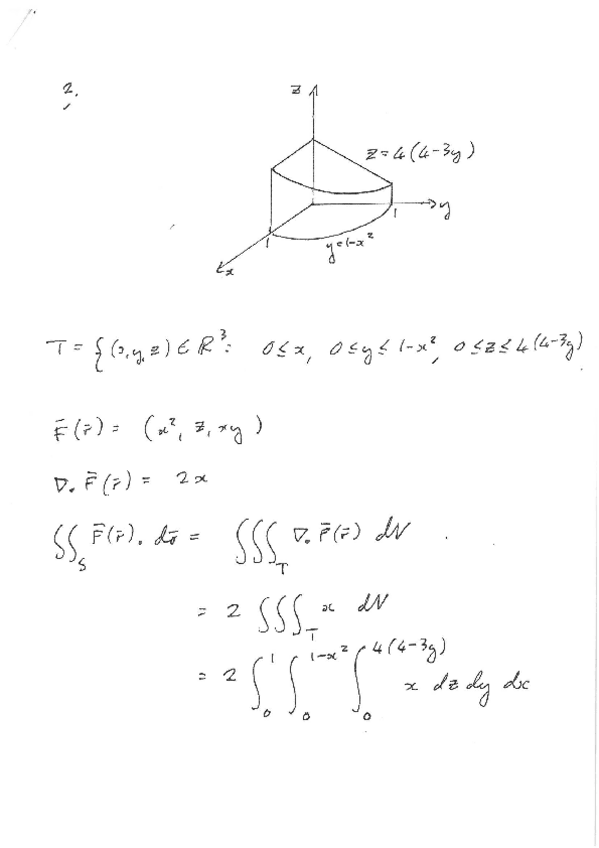 2.
z
z=4(4-3y)
y
1
1
y=1-x²
x
T = {(x,y,z) ∈ ℝ³: 0≤x, 0≤y≤1-x², 0≤z≤4(4-3y)
F̄(r̄) = (x², z, xy)
∇. F̄(r̄) = 2x
∬_S F̄(r̄). dσ̄ = ∭_T ∇. F̄(r̄) dV
= 2 ∭_T x dV
= 2 ∫₀¹ ∫₀^{1-x²} ∫₀^{4(4-3y)} x dz dy dx